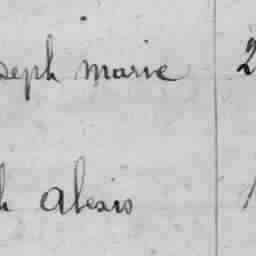 seph marie 2
h alexis 1